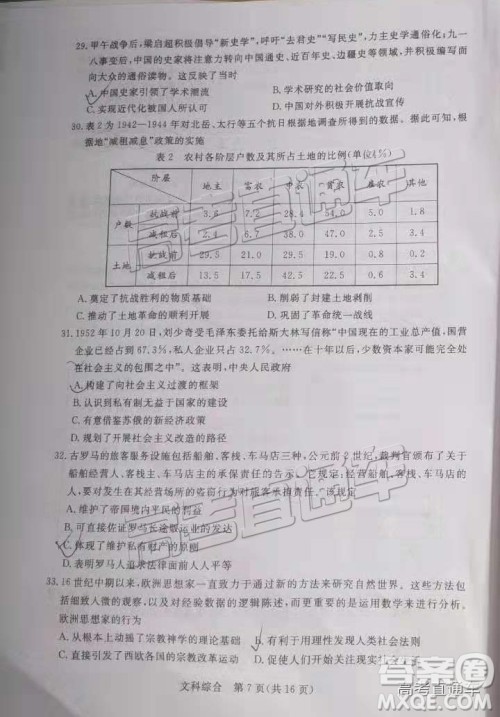 29. 甲午战争后，梁启超积极倡导“新史学”，呼吁“去君史”“写民史”，力主史学通俗化；九一
八事变后，中国的史家将注意力转向中国通史、近百年史、边疆史等领域，并积极编写面
向大众的通俗读物。这反映出
A. 中国史家引领了学术潮流
B. 学术研究的社会价值取向
C. 实现近代化被国人所公认
D. 中国对外积极开展抗战宣传
30. 表2为1942—1944年对北岳、太行等五个抗日根据地调查所得到的数据。据此可知，根
据地“减租减息”政策的实施
表2 农村各阶层户数及其所占土地的比例(单位:%)
阶层 地主 富农 中农 贫农 雇农 其他
户数 抗战前 3.8 7.2 28.4 54.0 5.0 1.8
减租后 2.4 6.7 38.0 47.0 2.5 3.4
土地 抗战前 29.5 21.0 29.5 19.0 0.6 0.4
减租后 13.5 17.5 42.5 22.5 0.6 3.4
A. 奠定了抗战胜利的物质基础
B. 削弱了封建土地剥削
C. 推动了土地革命的顺利开展
D. 巩固了国民革命统一战线
31. 1952年10月20日，刘少奇受毛泽东委托给斯大林写信称“中国现在的工业总产值，国营
企业已经占到67.3%，私人企业只占32.7%。……在十年以后，少数资本家可能完全处
在社会主义的包围之中”。这表明，中央人民政府
A. 构建了向社会主义过渡的框架
B. 认识到私有制无益于国家建设
C. 有意借鉴苏俄的新经济政策
D. 规划了开展社会主义改造的路径
32. 古罗马的旅客服务设施包括船舶、客栈、车马店三种，公元前2世纪，裁判官颁布了关于
船舶经营人、客栈主、车马店主的承保责任的告示，它规定，经营船舶、客栈、车马店的人，
有义务对发生在其经营场所的盗窃行为对旅客承担责任。该规定
A. 维护了帝国境内平民的利益
B. 可直接佐证罗马长途贩运业发达
C. 体现了维护私有财产的原则
D. 表明罗马人追求法律面前人人平等
33. 16世纪中期以来，欧洲思想家一直致力于通过新的方法来研究自然世界。这些方法包
括细致入微的观察，以及对经验数据的逻辑陈述，而不重复过去的权威。由此可知，当时
欧洲思想家的行为
A. 从根本上动摇了宗教神学的理论基础
B. 有利于用理性发现人类社会法则
C. 直接引发了西欧各国的宗教改革运动
文科综合 第7页(共16页)
高考直通车
答案圈
MXQE.COM
高考直通车